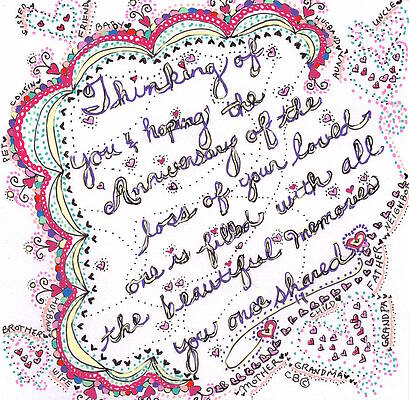 Thinking of
you & hoping the
Anniversary of the
loss of your loved
one is filled with all
the beautiful memories
you once shared
SISTER
FRIEND
BABY
UNCLE
PET
NEIGHBOR
FATHER
CHILD
GRANDPA
BROTHER
COUSIN
WIFE
MOTHER
GRANDMA
CBC